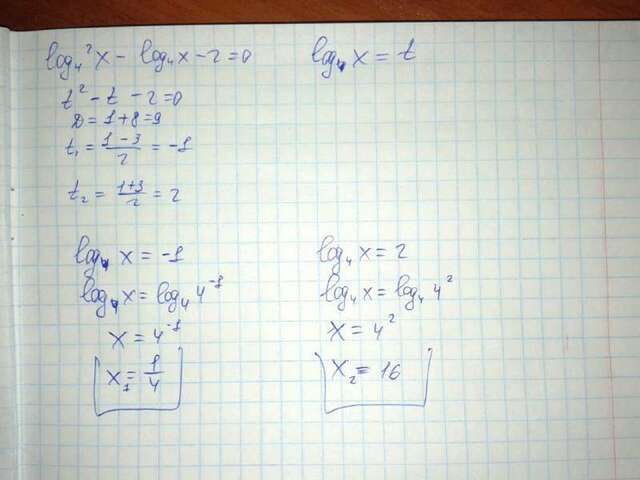 log₄²x − log₄x − 2 = 0
log₄x = t
t² − t − 2 = 0
D = 1 + 8 = 9
t₁ = (1 − 3)/2 = −1
t₂ = (1+3)/2 = 2
log₄x = −1
log₄x = log₄4⁻¹
x = 4⁻¹
x₁ = 1/4
log₄x = 2
log₄x = log₄4²
x = 4²
x₂ = 16